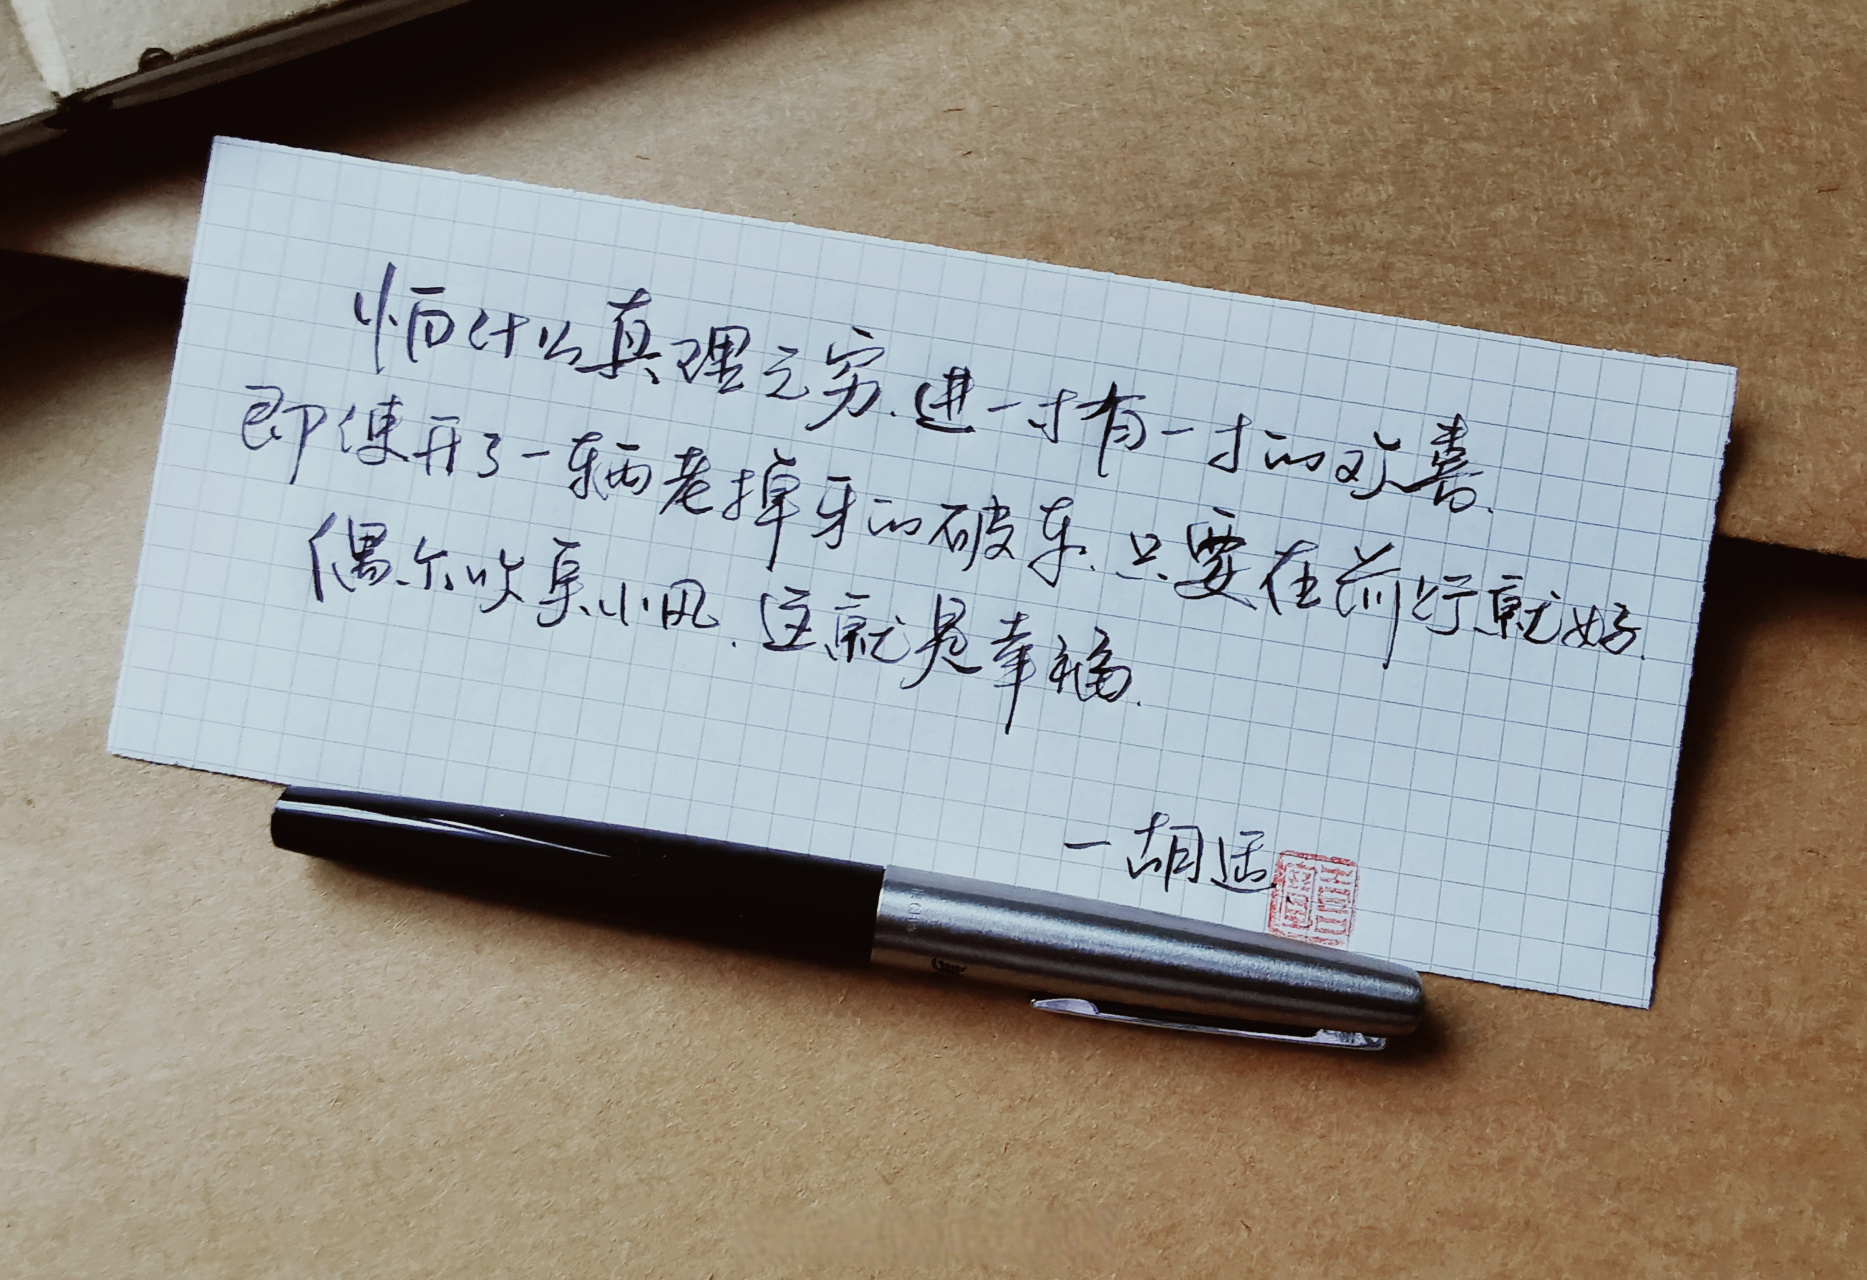 怕什么真理无穷.进一寸有一寸的欢喜.
即使开了一辆老掉牙的破车.只要在前行就好.
偶尔吹来小风.这就是幸福.
一胡适